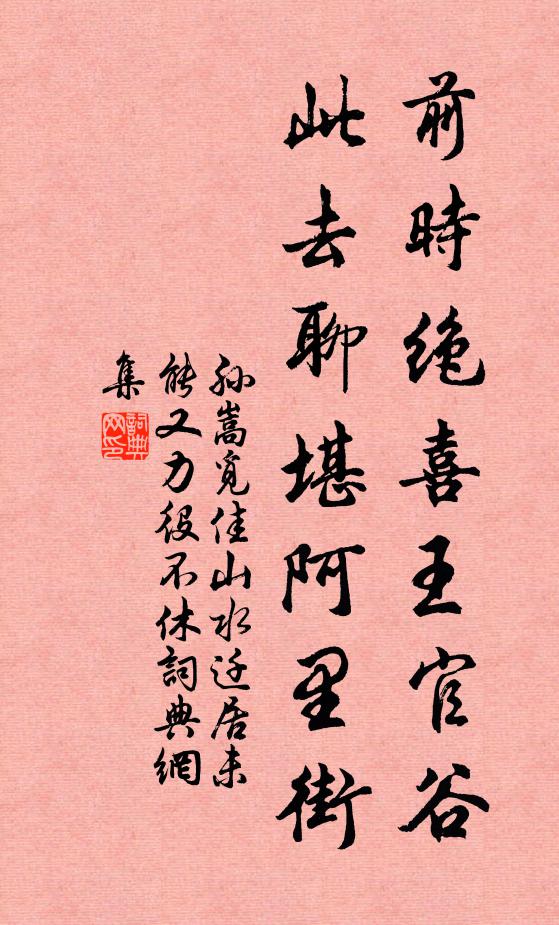 前時絶喜王官谷
此去聊堪阿里街
孙嵩覓佳山水迁居未
能又力役不休詞典網
集
詞典
网印